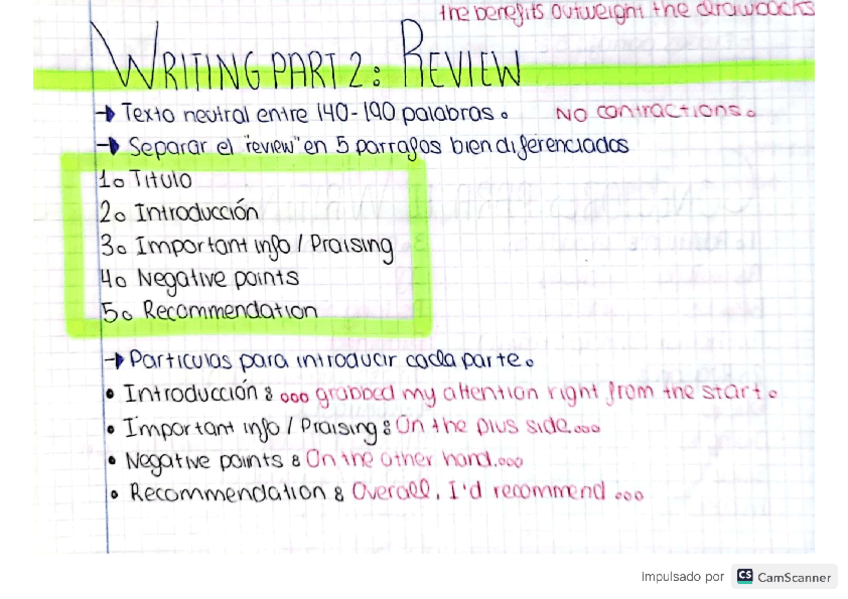 the benefits outweight the drawbacks
WRITING PART 2: REVIEW
→ Texto neutral entre 140-190 palabras. No contractions.
→ Separar el "review" en 5 parrafos bien diferenciados
1. Titulo
2. Introducción
3. Important info / Praising
4. Negative points
5. Recommendation
→ Particulas para introducir cada parte.
• Introducción: ... grabbed my attention right from the start.
• Important info / Praising: On the plus side...
• Negative points: On the other hand...
• Recommendation: Overall, I'd recommend ...
Impulsado por CS CamScanner